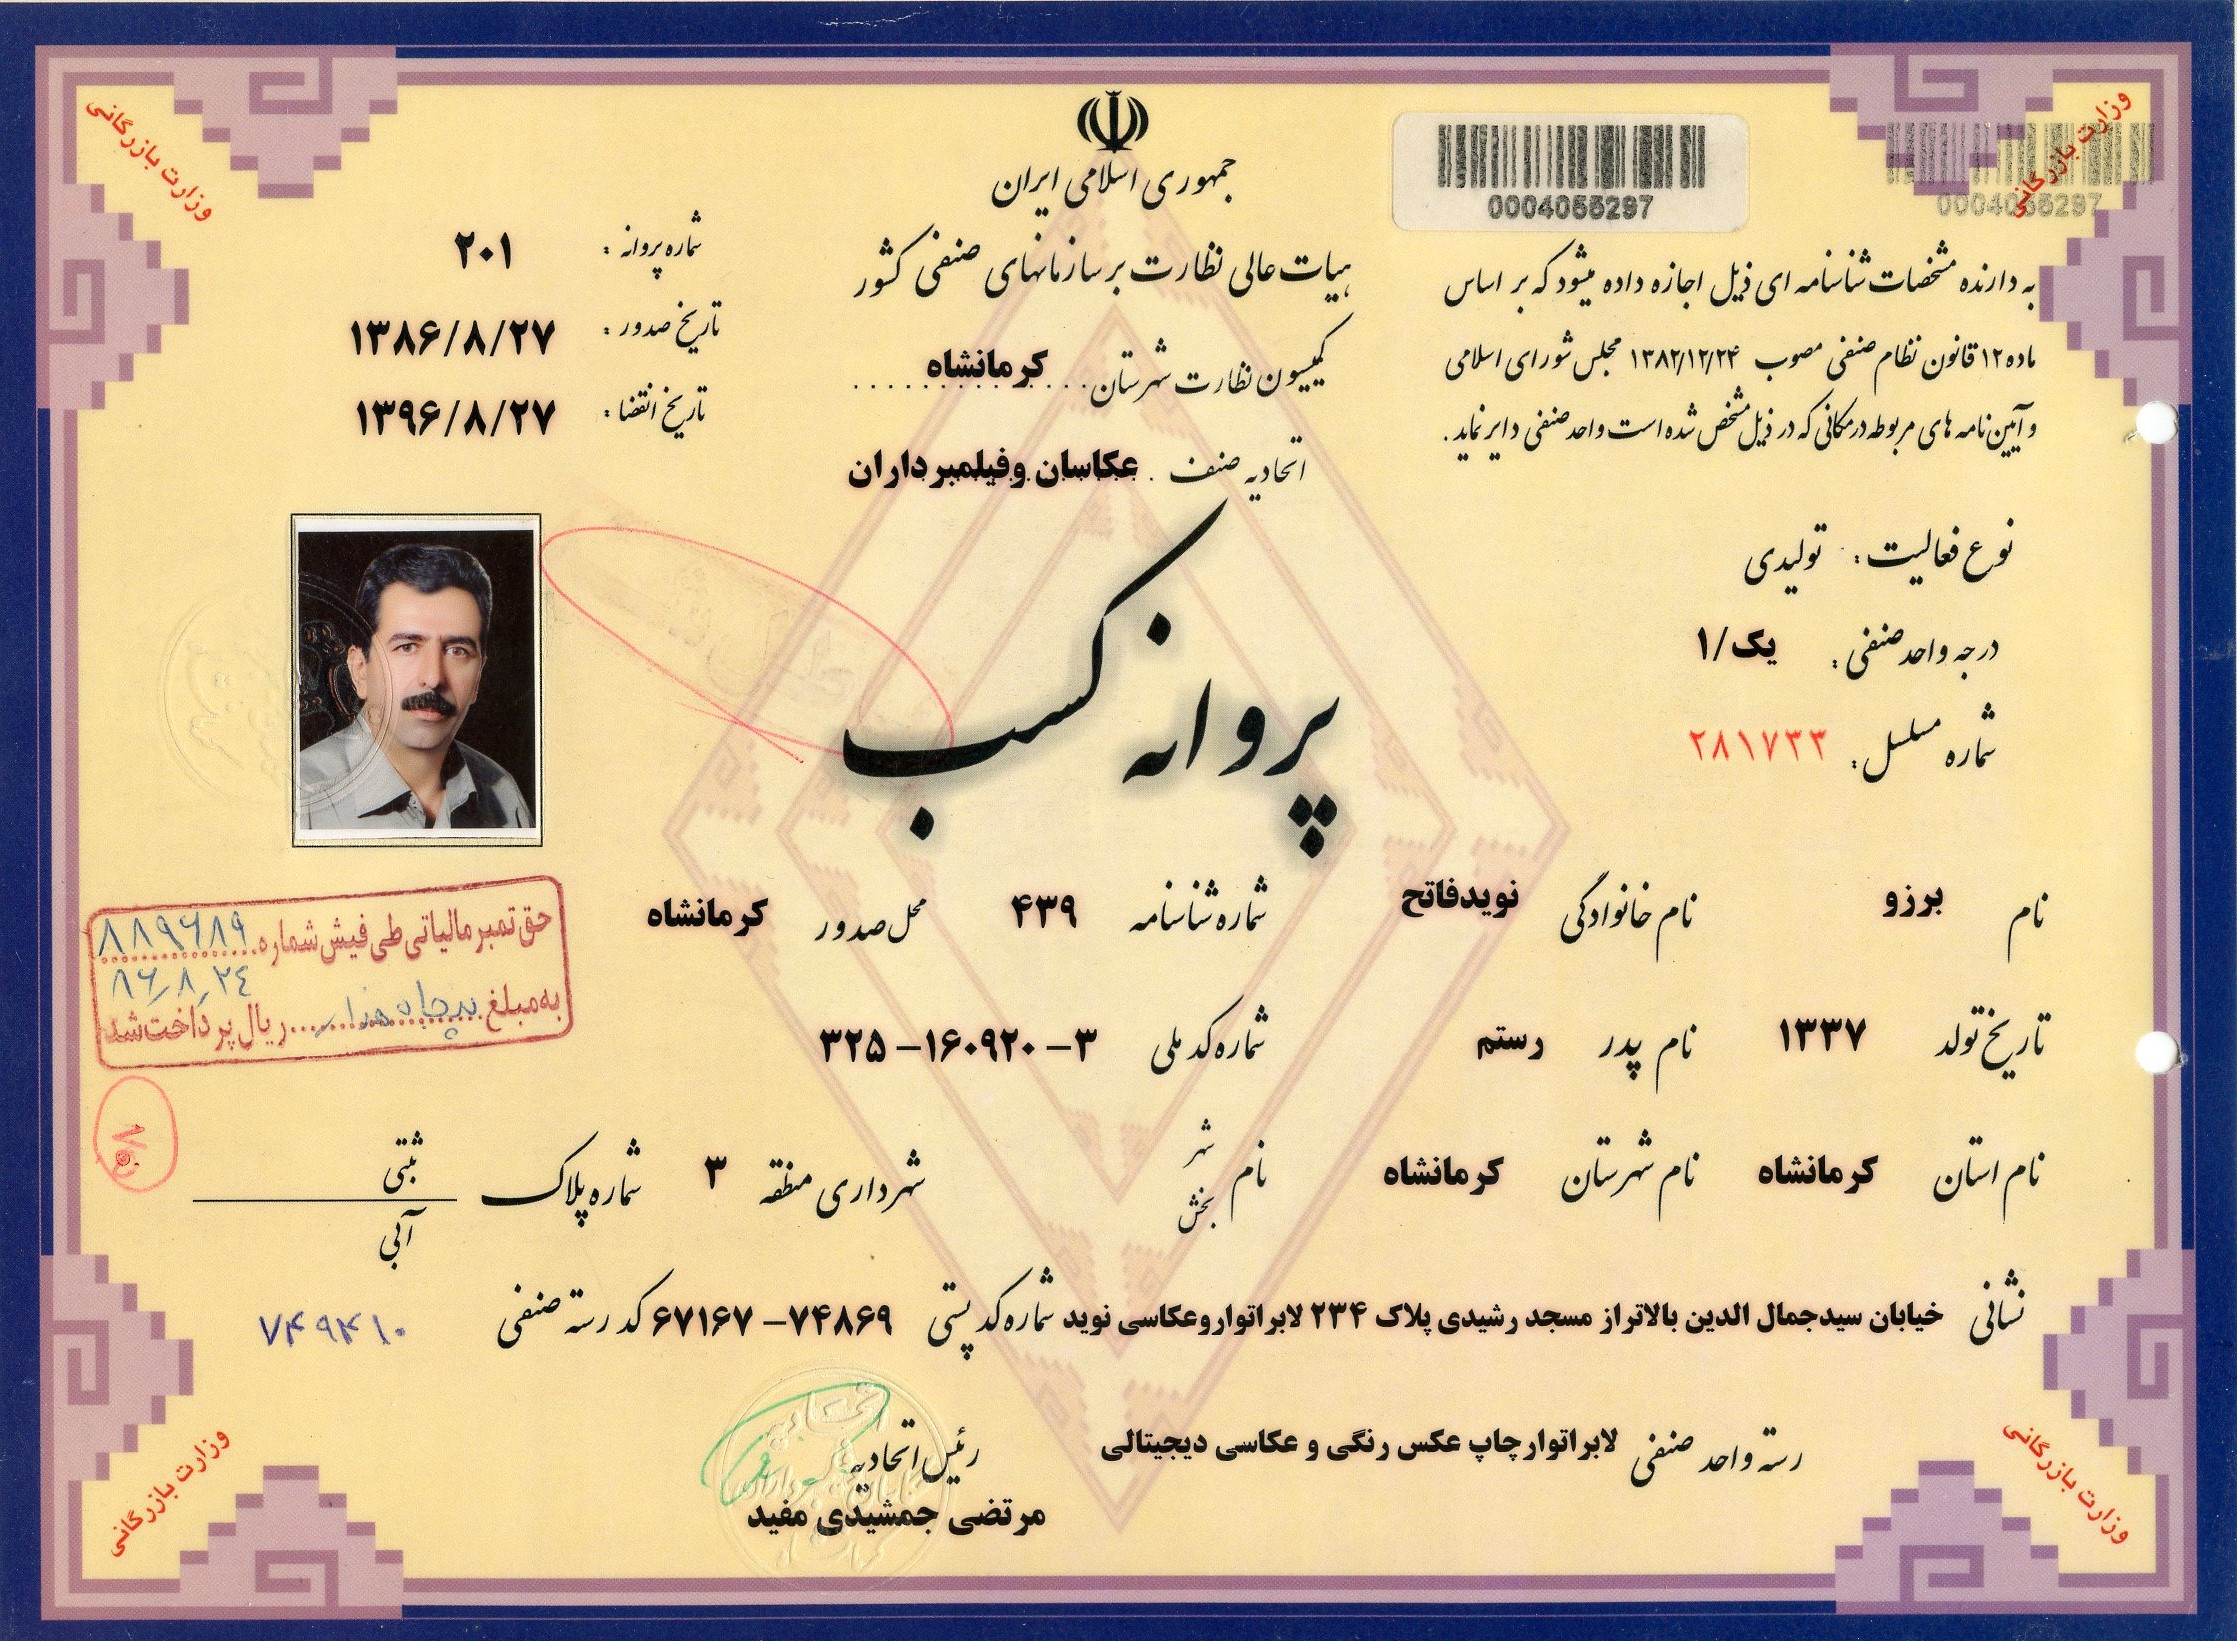 جمهوری اسلامی ایران
هیات عالی نظارت بر سازمانهای صنفی کشور
کمیسیون نظارت شهرستان کرمانشاه
اتحادیه صنف عکاسان وفیلمبرداران
0004055297
0004055297
به دارنده مشخصات شناسنامه ای ذیل اجازه داده میشود که بر اساس
ماده ۱۲ قانون نظام صنفی مصوب ۱۳۸۲/۱۲/۲۴ مجلس شورای اسلامی
و آیین نامه های مربوطه در مکانی که در ذیل مشخص شده است واحد صنفی دایر نماید.
شماره پروانه : ۲۰۱
تاریخ صدور : ۱۳۸۶/۸/۲۷
تاریخ انقضا : ۱۳۹۶/۸/۲۷
نوع فعالیت : تولیدی
درجه واحد صنفی : یک/۱
شماره مسلسل : ۲۸۱۷۳۳
پروانه کسب
نام برزو نام خانوادگی نویدفاتح شماره شناسنامه ۴۳۹ محل صدور کرمانشاه
تاریخ تولد ۱۳۳۷ نام پدر رستم شماره کد ملی ۳۲۵–۱۶۰۹۲۰–۳
نام استان کرمانشاه نام شهرستان کرمانشاه نام شهر بخش شهرداری منطقه ۳ شماره پلاک ثبتی آبی
نشانی خیابان سیدجمال الدین بالاتراز مسجد رشیدی پلاک ۲۳۴ لابراتواروعکاسی نوید شماره کد پستی ۶۷۱۶۷–۷۴۸۶۹ کد رسته صنفی ۷۴۹۴۱۰
رسته واحد صنفی لابراتوارچاپ عکس رنگی و عکاسی دیجیتالی
رئیس اتحادیه
مرتضی جمشیدی مفید
حق تمبر مالیاتی طی فیش شماره ۸۸۹۶۸۹
۸۶/۸/۲۴
به مبلغ پنجاه هزار ریال پرداخت شد
وزارت بازرگانی
وزارت بازرگانی
وزارت بازرگانی
وزارت بازرگانی